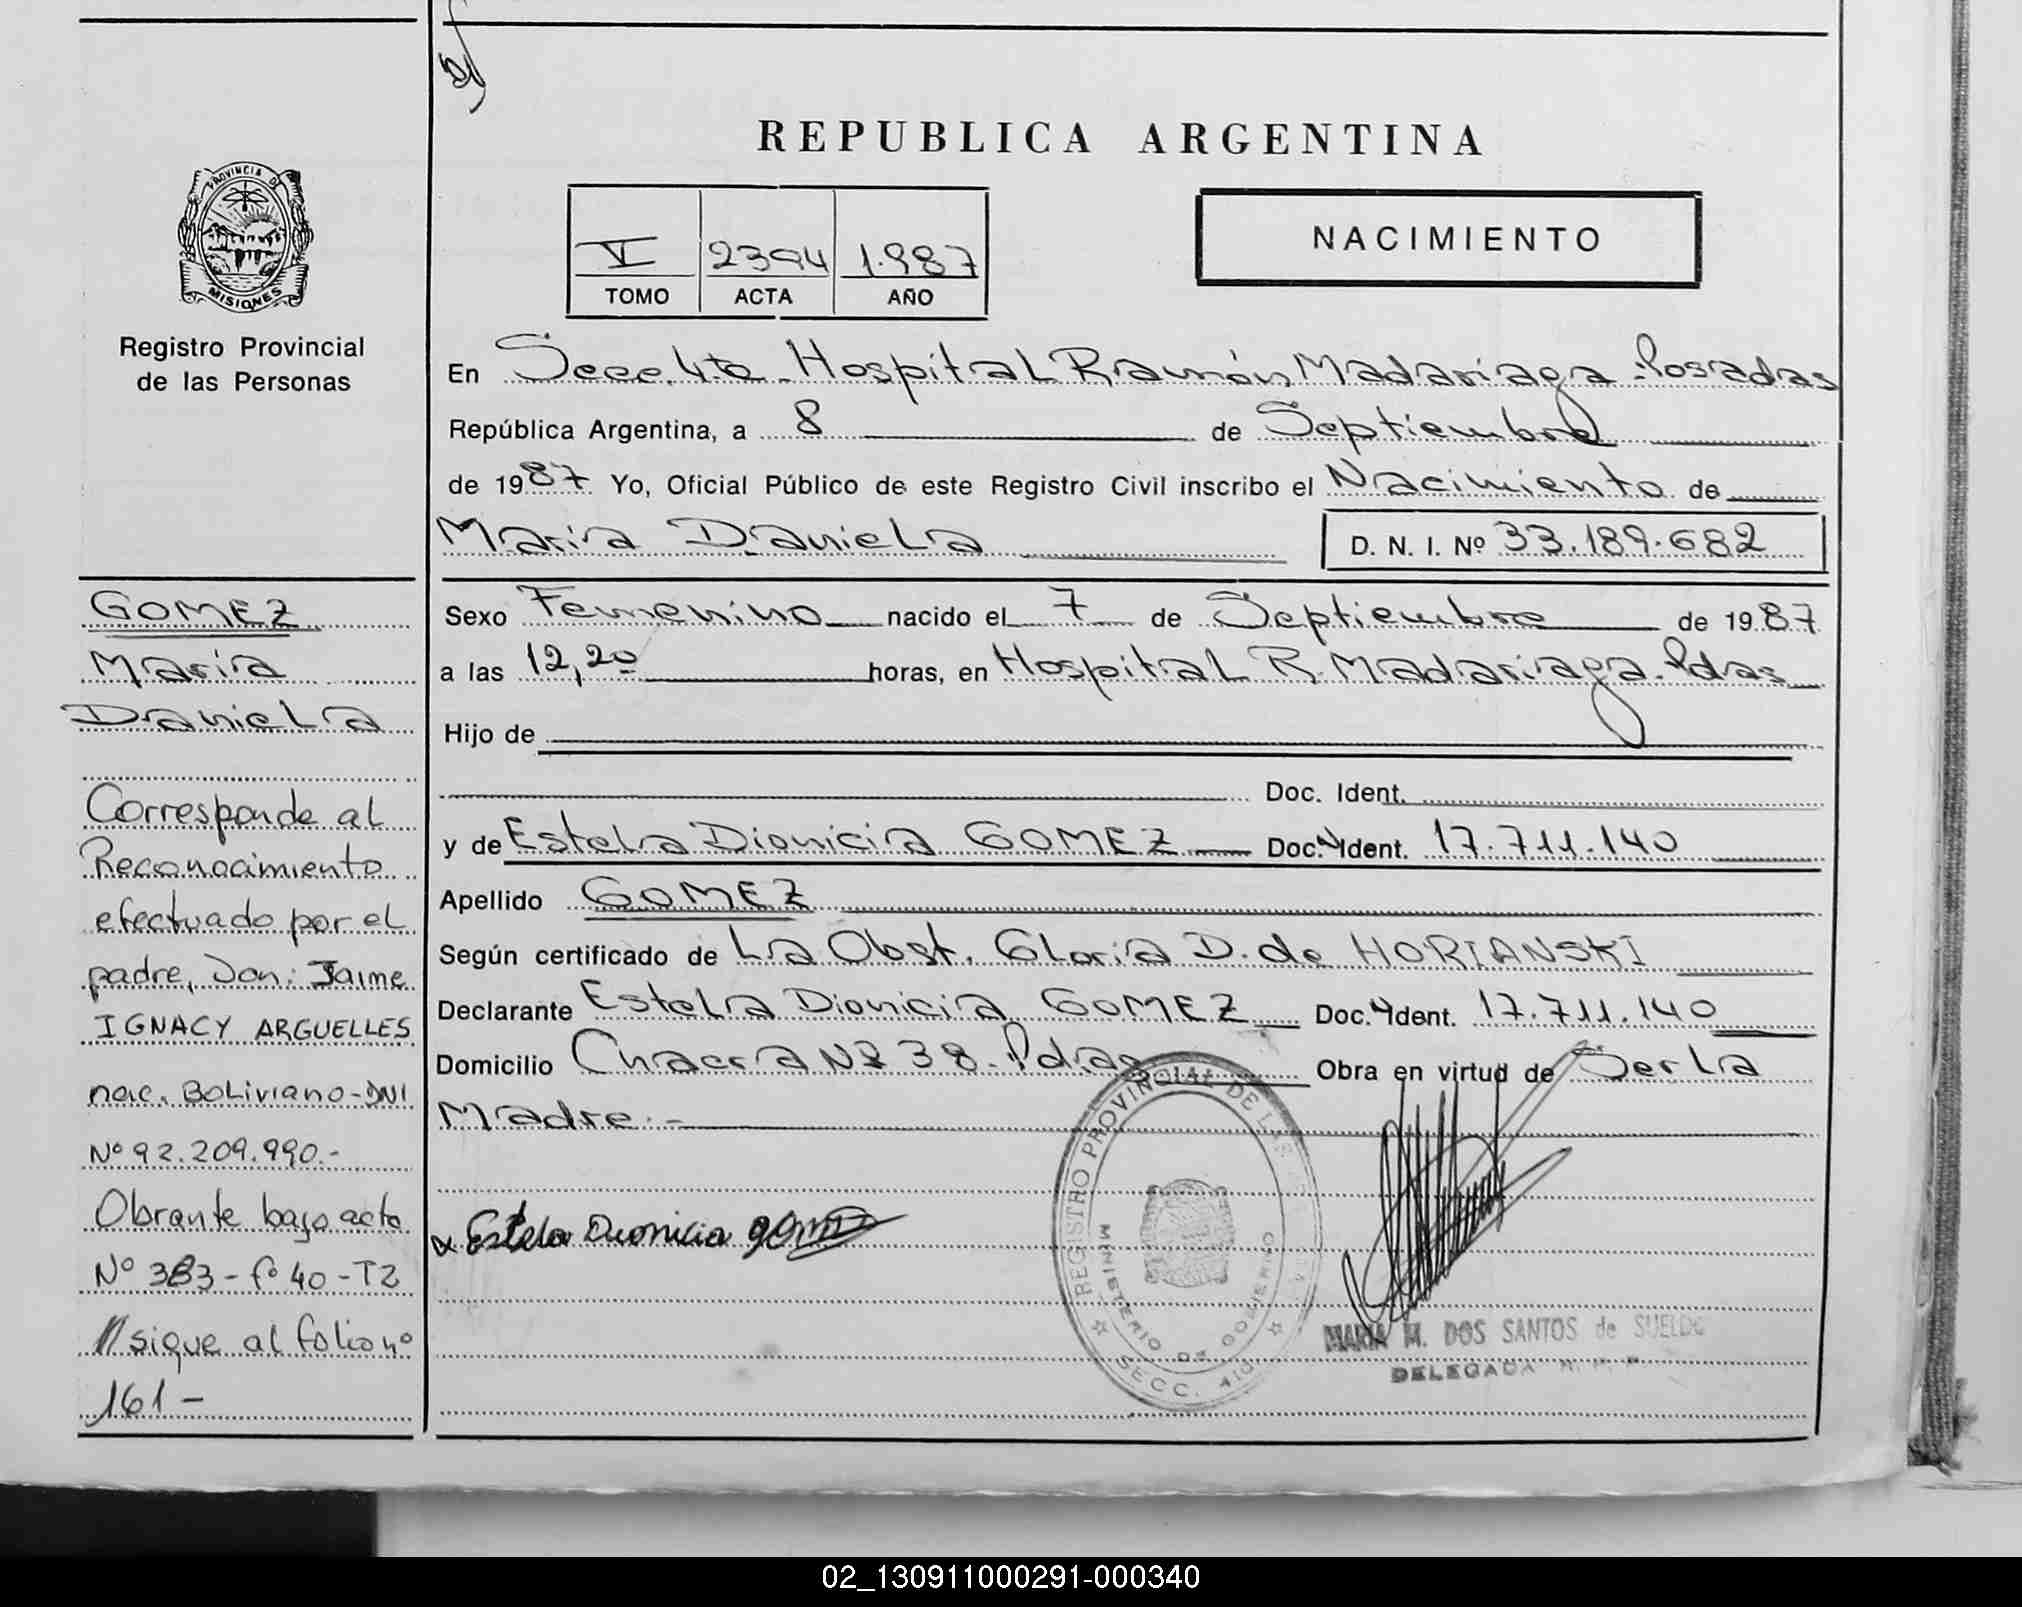 REPUBLICA ARGENTINA
PROVINCIA DE
MISIONES
Registro Provincial
de las Personas
V 2394 1.987
TOMO ACTA AÑO
NACIMIENTO
En Secc. 4ta. Hospital Ramón Madariaga - Posadas
República Argentina, a 8 de Septiembre
de 1987 Yo, Oficial Público de este Registro Civil inscribo el Nacimiento de
Maria Daniela D. N. I. Nº 33.189.682
Sexo Femenino nacido el 7 de Septiembre de 1987
a las 12,20 horas, en Hospital R. Madariaga. Pdas
Hijo de
Doc. Ident.
y de Estela Dionicia GOMEZ Doc. Ident. 17.711.140
Apellido GOMEZ
Según certificado de La Obst. Gloria D. de HORIANSKI
Declarante Estela Dionicia GOMEZ Doc. Ident. 17.711.140
Domicilio Chacra Nº 38. Pdas Obra en virtud de Ser La
Madre.-
Estela Dionicia gomez
REGISTRO PROVINCIAL DE LAS
MINISTERIO DE GOBIERNO
SECC. 4ta
MARIA M. DOS SANTOS de SUELDO
DELEGADA
GOMEZ
María
Daniela
Corresponde al
Reconocimiento
efectuado por el
padre, Don: Jaime
IGNACY ARGUELLES
nac. Boliviano-DNI
Nº 92.209.990.-
Obrante bajo acta
Nº 383-fº 40-T2
// sigue al folio nº
161-
02_130911000291-000340